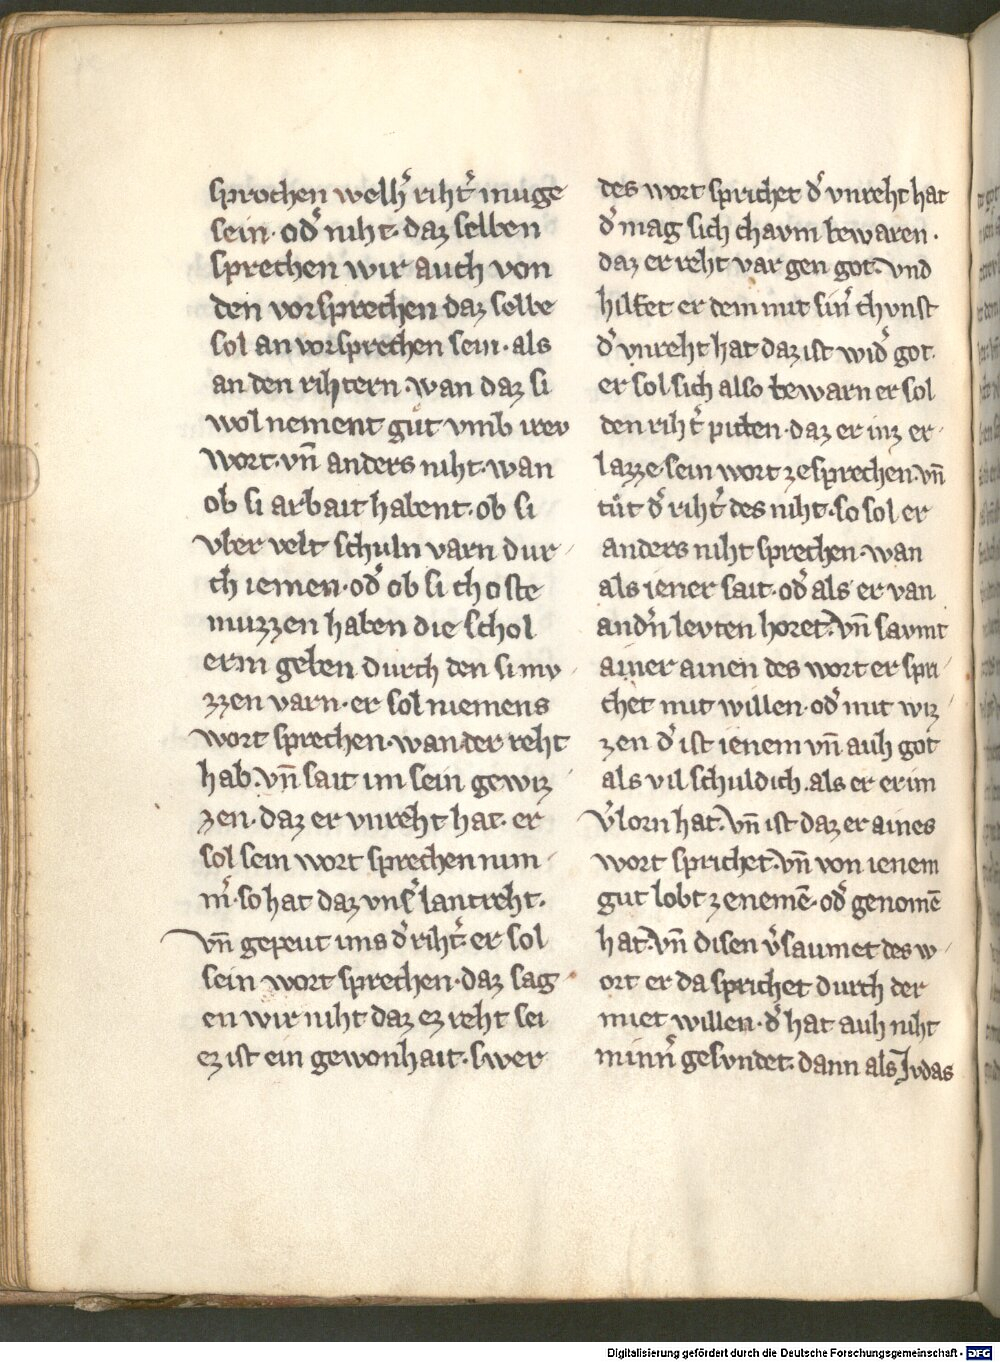 sprochen welh͛ riht͛ muge
sein· od͛ niht· daz selben
sprechen wir auch von
den vorsprechen daz selbe
sol an vorsprechen sein· als
an den rihtern· wan daz si
wol nement gůt vmb irev
wort· vn̄ anders niht· wan
ob si arbait habent· ob si
vber velt schuln varn dur-
ch iemen· od͛ ob si choste
muzzen haben die schol
er in geben durch den si mv-
zzen varn· er sol niemens
wort sprechen· wan der reht
hab· vn̄ sait im sein gewiz-
zen· daz er vnreht hat· er
sol sein wort sprechen nim-
m͛· so hat daz vns͛ lantreht·
vn̄ gepeut uns d͛ riht͛· er sol
sein wort sprechen· daz sag-
en wir niht daz ez reht sei
ez ist ein gewonhait· swer
des wort sprichet d͛ vnreht hat
d͛ mag sich chavm bewaren·
daz er reht var gen got· vnd
hilfet er dem mit sin͛ chvnst
d͛ vnreht hat daz ist wid͛ got·
er sol sich also bewarn er sol
den riht͛ pitten· daz er inz er-
lazze· sein wort ze sprechen· vn̄
tůt d͛ riht͛ des niht· so sol er
anders niht sprechen· wan
als iener sait· od͛ als er van
and͛n levten horet· vn̄ savmt
ainer ainen des wort er spri-
chet mit willen· od͛ mit wiz-
zen d͛ ist ienem vn̄ auh got
als vil schuldich· als er er im
v͛lorn hat· vn̄ ist daz er aines
wort sprichet· vn̄ von ienem
gut lobt ze nemē· od͛ genomē
hat· vn̄ disen v͛saumet des w-
ort er da sprichet durch der
miet willen· d͛ hat auh niht
minn͛ gesvndet· dann als Jvdas
Digitalisierung gefördert durch die Deutsche Forschungsgemeinschaft - DFG